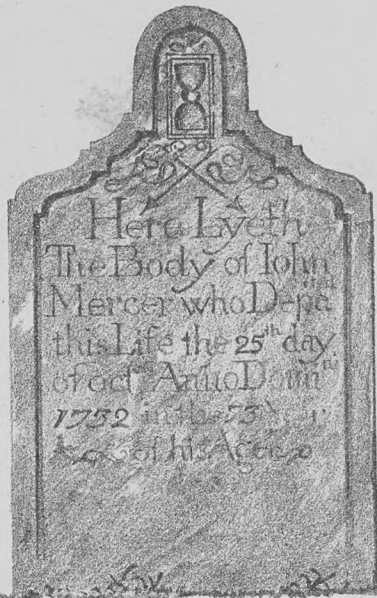 Here Lyeth
The Body of Iohn
Mercer who Depa
this Life the 25th day
of oct Anno Dom
1752 in the 73
of his Age